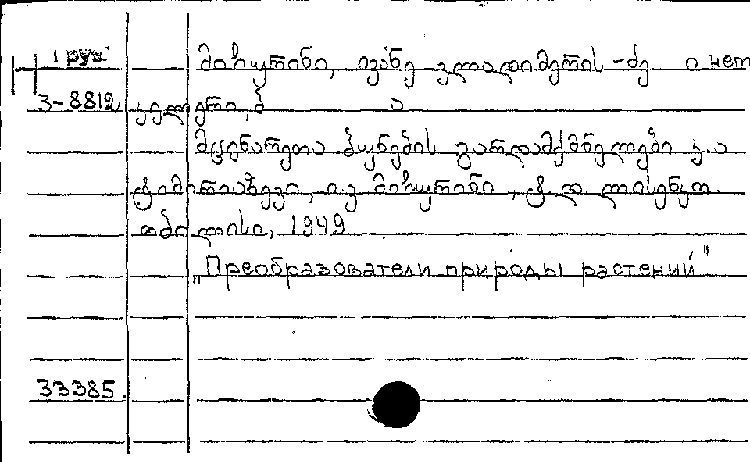 1 груз მიჩურინი, ივანე ვლადიმერის-ძე. о нем
3-8812 კელერი, ბ
მცენარეთა ბუნების გარდამქმნელები კ.ა
ტიმირიაზევი, ი.ვ მიჩურინი, ტ.დ ლისენკო.
თბილისი, 1949
„Преобразователи природы растений"
33385.